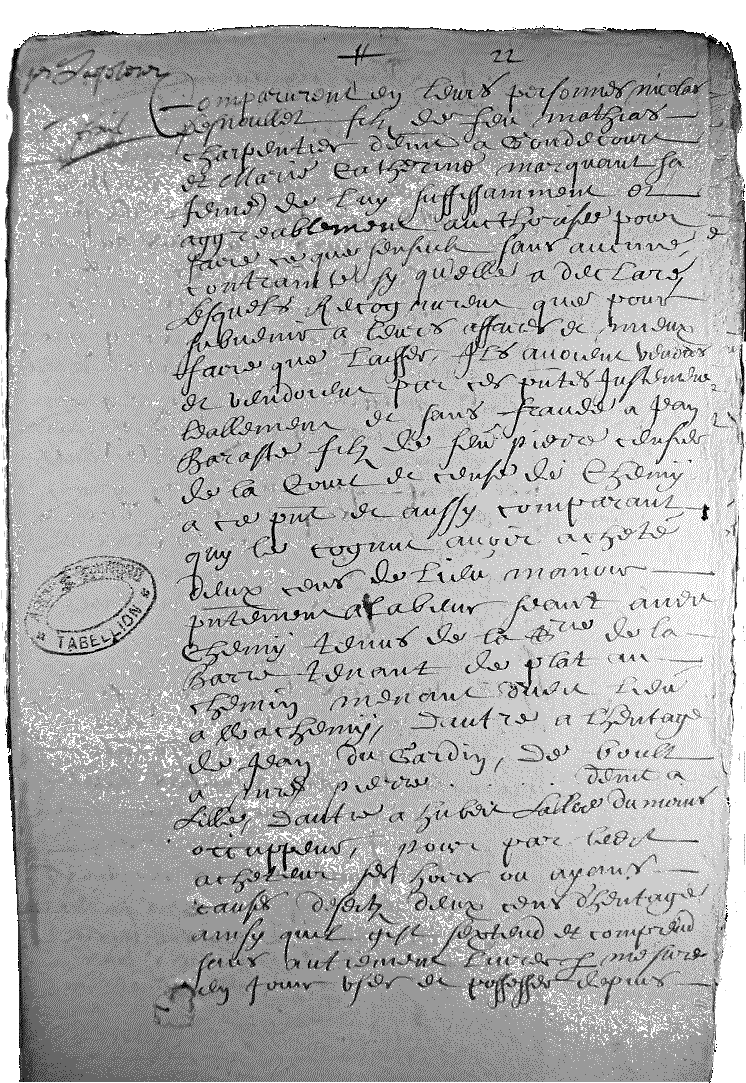 22
Comparurent en leurs personnes nicolas
desmoulet filz de feu mathias
charpentier demt a Gondecourt
et Marie Catherine marquant sa
feme de luy suffissamment et
aggreablement aucthorisée pour
faire ce que sensuit sans aucune
contrainte sy qu'elle a declaré
Lesquels Recognurent que pour
subuenir a leurs affaires et mieux
faire que laisser, Ils auoient vendus
et vendoient par ces pntes Justement
leallement et sans fraude a Jean
Baratte filz de feu pierre censier
de la Court et cense de Chemy
a ce pnt et aussy comparant
quy le cognut auoir acheté
deux cens de Lieu manoir
pntement a labeur seant audit
Chemy tenus de la Srie de la
Barre tenant de plat au
chemin menant dudit lieu
a Wachemy, dautre a lheritage
de Jean du Gardin, de boult
a pierre demt a
Lille, dautre a hubert du moins
occuppeur, pour par ledit
acheteur ses hoirs ou ayans
causes desditz deux cens d'heritage
ainsy quil gist sextend et comprend
sans autrement liurer p mesure
en Jouir vser et posseser depuis
TABELLION